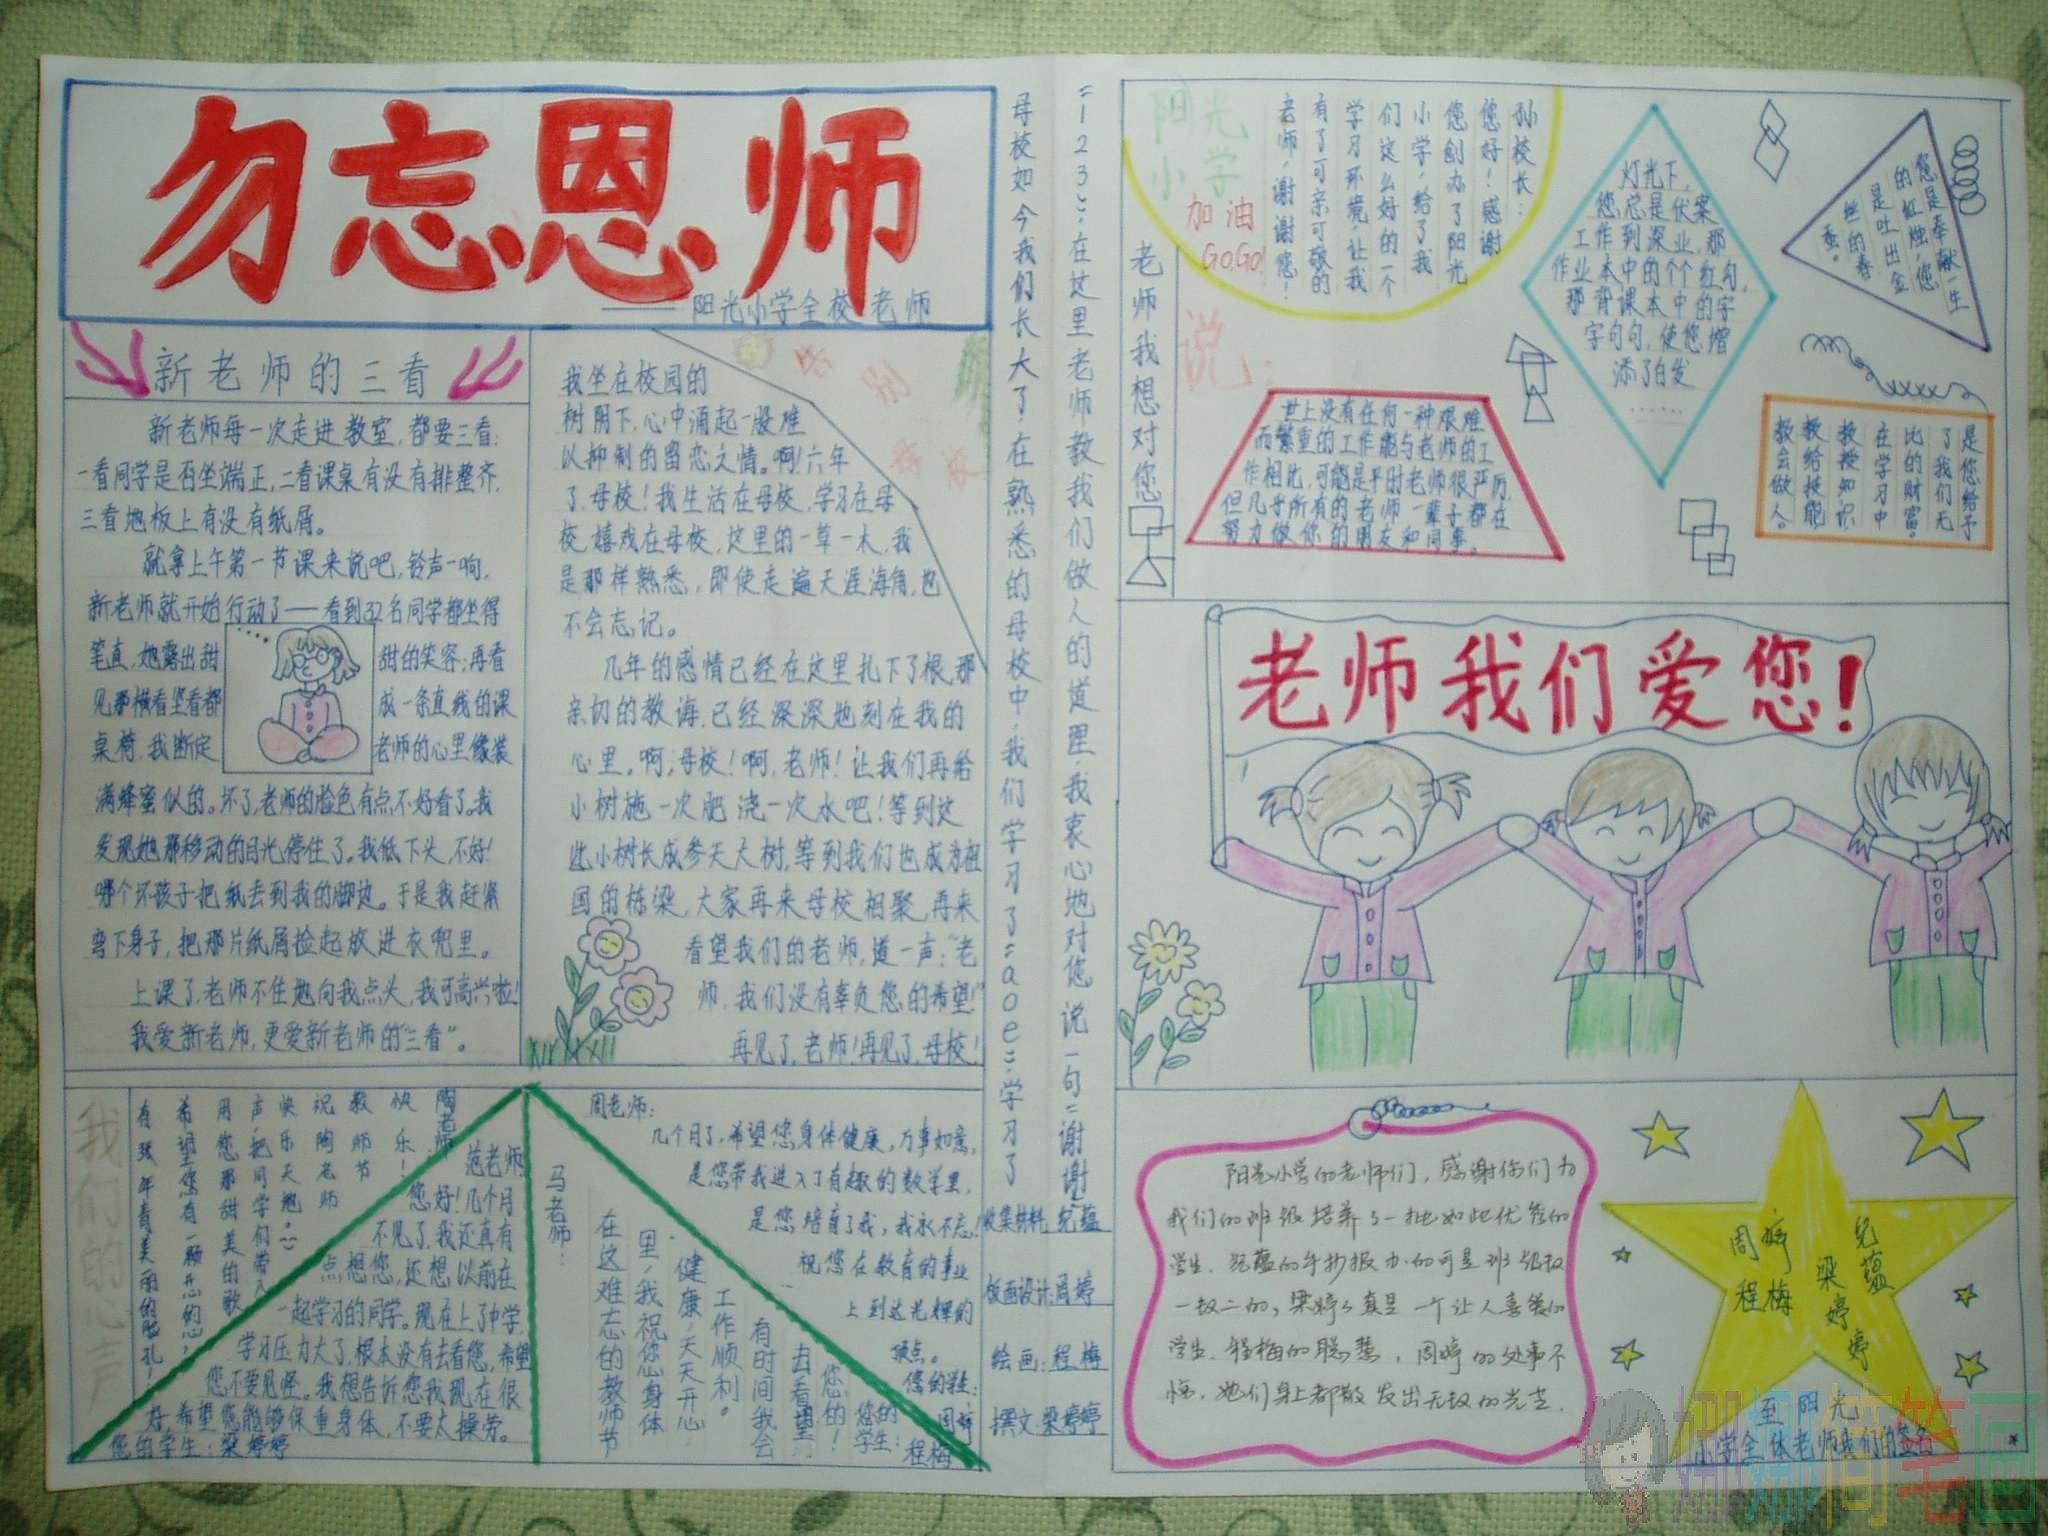 勿忘恩师
——阳光小学全校老师
新老师的三看
新老师每一次走进教室,都要三看:
一看同学是否坐端正,二看课桌有没有排整齐,
三看地板上有没有纸屑。
就拿上午第一节课来说吧,铃声一响,
新老师就开始行动了——看到32名同学都坐得
笔直,她露出甜甜的笑容;再看
见那横看竖看都成一条直线的课
桌椅,我断定老师的心里像装
满蜂蜜似的。坏了,老师的脸色有点不好看了。我
发现她那移动的目光停住了。我低下头,不好!
哪个坏孩子把纸丢到我的脚边。于是我赶紧
弯下身子,把那片纸屑捡起放进衣兜里。
上课了,老师不住地向我点头,我可高兴啦!
我爱新老师,更爱新老师的“三看”。
告别母校
我坐在校园的
树阴下,心中涌起一股难
以抑制的留恋之情。啊!六年
了,母校!我生活在母校,学习在母
校,嬉戏在母校,这里的一草一木,我
是那样熟悉,即使走遍天涯海角,也
不会忘记。
几年的感情已经在这里扎下了根,那
亲切的教诲,已经深深地刻在我的
心里。啊,母校!啊,老师!让我们再给
小树施一次肥 浇一次水吧!等到这
些小树长成参天大树,等到我们也成为祖
国的栋梁,大家再来母校相聚,再来
看望我们的老师,道一声:“老
师,我们没有辜负您的希望!”
再见了,老师!再见了,母校!
我们的心声
陶老师:
快乐!
教师节
祝陶老师
快乐天地。
声,把同学们带入
用您那甜美的歌
希望您有一颗开心的心,
有张年青美丽的脸孔!
范老师
您好!几个月
不见了,我还真有
点想您,还想以前在
一起学习的同学。现在上了中学,
学习压力大了,根本没有去看您,希望
您不要见怪。我想告诉您我现在很
好,希望您能够保重身体,不要太操劳。
您的学生:梁婷婷
马老师:
在这难忘的教师节
里,我祝您身体
健康,天天开心
工作顺利。
有时间我会
去看望
您的!
您的
学生:
程梅
周老师:
几个月了,希望您身体健康,万事如意,
是您带我进入了有趣的数学里,
是您培育了我,我永不忘!
祝您在教育的事业
上到达光辉的
顶点。
您的学生:
周婷
母校如今我们长大了,在熟悉的母校中,我们学习了=aoe=学习了
=123=,在这里老师教我们做人的道理,我衷心地对您说一句=谢谢
收集材料:倪蕴
版面设计:周婷
绘画:程梅
撰文:梁婷婷
老师我想对您
说:
阳光
小学
加油
Go,Go!
孙校长:
您好!感谢
您创办了阳光
小学,给了我
们这么好的一个
学习环境,让我
有了可亲可敬的
老师,谢谢您!
灯光下,
您总是伏案
工作到深业,那
作业本中的个个红勾,
那背课本中的字
字句句,使您增
添了白发
……
您是奉献一生
的红烛,您
是吐出金
丝的春
蚕。
世上没有任何一种艰难
而繁重的工作能与老师的工
作相比,可能是平时老师很严厉,
但几乎所有的老师一辈子都在
努力做你的朋友和同事。
是您给予
了我们无
比的财富。
在学习中
教授知识
教给技能
教会做人。
老师我们爱您!
阳光小学的老师们,感谢你们为
我们的班级培养了一批如此优秀的
学生,倪蕴的手抄报办的可是班级数
一数二的,梁婷婷真是一个让人喜爱的
学生,程梅的聪慧,周婷的处事不
惊,她们身上都散发出无数的光芒.
周婷
程梅
倪蕴
梁婷婷
至阳光
小学全体老师我们的签名
娜娜简笔画